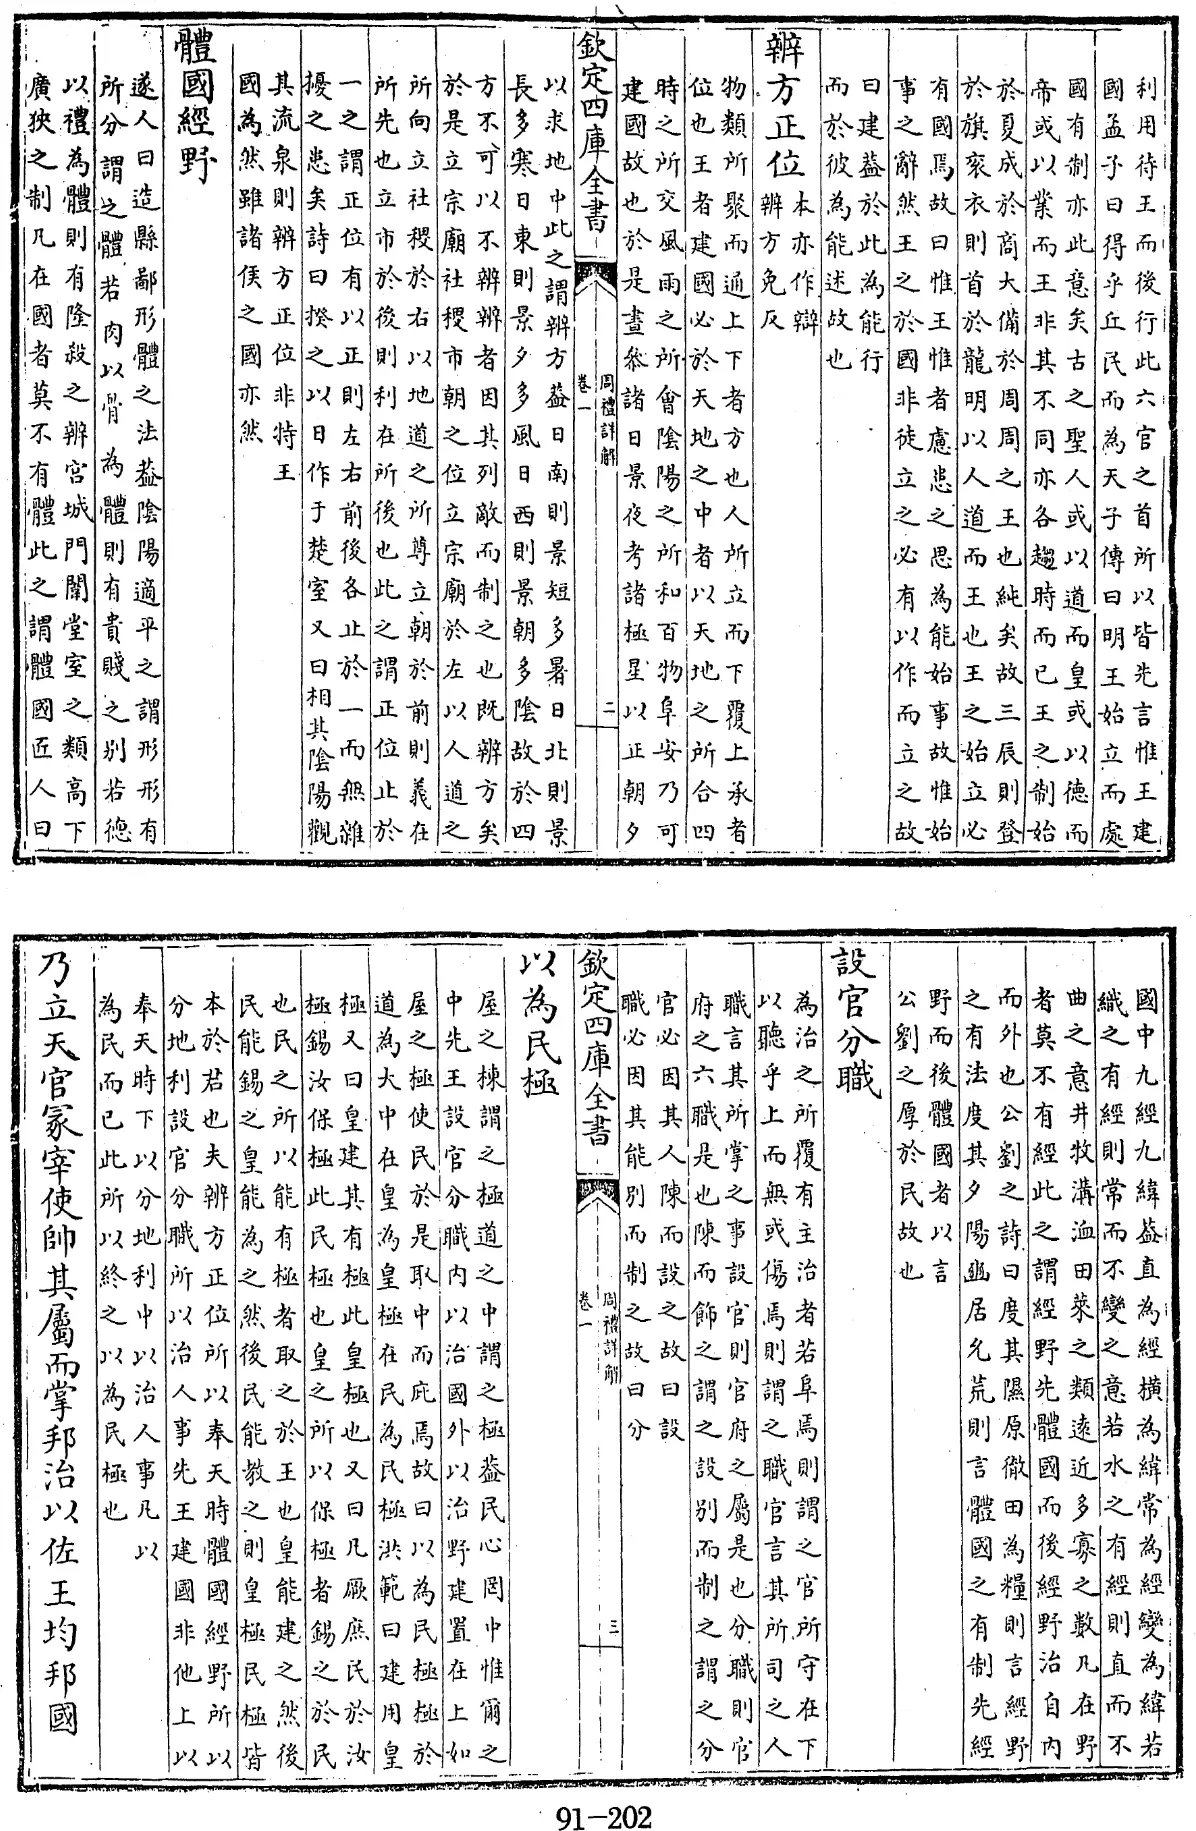 利用待王而後行此六官之首所以皆先言惟王建
國孟子曰得乎丘民而為天子傳曰明王始立而處
國有制亦此意矣古之聖人或以道而皇或以德而
帝或以業而王非其不同亦各趨時而已王之制始
於夏成於商大備於周周之王也純矣故三辰則登
於旗衮衣則首於龍明以人道而王也王之始立必
有國焉故曰惟王惟者慮患之思為能始事故惟始
事之辭然王之於國非徒立之必有以作而立之故
曰建葢於此為能行
而於彼為能述故也
辨方正位
本亦作辯
辨方免反
物類所聚而通上下者方也人所立而下覆上承者
位也王者建國必於天地之中者以天地之所合四
時之所交風雨之所會陰陽之所和百物阜安乃可
建國故也於是晝叅諸日景夜考諸極星以正朝夕
欽定四庫全書
周禮詳解
卷一
二
以求地中此之謂辨方葢日南則景短多暑日北則景
長多寒日東則景夕多風日西則景朝多陰故於四
方不可以不辨辨者因其列敵而制之也既辨方矣
於是立宗廟社稷市朝之位立宗廟於左以人道之
所向立社稷於右以地道之所尊立朝於前則義在
所先也立市於後則利在所後也此之謂正位止於
一之謂正位有以正則左右前後各止於一而無雜
擾之患矣詩曰揆之以日作于楚室又曰相其陰陽觀
其流泉則辨方正位非特王
國為然雖諸侯之國亦然
體國經野
遂人曰造縣鄙形體之法葢陰陽適平之謂形形有
所分謂之體若肉以骨為體則有貴賤之别若德
以禮為體則有隆殺之辨宮城門闈堂室之類高下
廣狹之制凡在國者莫不有體此之謂體國匠人曰
國中九經九緯葢直為經橫為緯常為經變為緯若
織之有經則常而不變之意若水之有經則直而不
曲之意井牧溝洫田萊之類逺近多寡之數凡在野
者莫不有經此之謂經野先體國而後經野治自内
而外也公劉之詩曰度其隰原徹田為糧則言經野
之有法度其夕陽豳居允荒則言體國之有制先經
野而後體國者以言
公劉之厚於民故也
設官分職
為治之所覆有主治者若阜焉則謂之官所守在下
以聽乎上而無或傷焉則謂之職官言其所司之人
職言其所掌之事設官則官府之屬是也分職則官
府之六職是也陳而飾之謂之設别而制之謂之分
官必因其人陳而設之故曰設
職必因其能别而制之故曰分
欽定四庫全書
周禮詳解
卷一
三
以為民極
屋之棟謂之極道之中謂之極葢民心罔中惟爾之
中先王設官分職内以治國外以治野建置在上如
屋之極使民於是取中而庇焉故曰以為民極極於
道為大中在皇為皇極在民為民極洪範曰建用皇
極又曰皇建其有極此皇極也又曰凡厥庶民於汝
極錫汝保極此民極也皇之所以保極者錫之於民
也民之所以能有極者取之於王也皇能建之然後
民能錫之皇能為之然後民能教之則皇極民極皆
本於君也夫辨方正位所以奉天時體國經野所以
分地利設官分職所以治人事先王建國非他上以
奉天時下以分地利中以治人事凡以
為民而已此所以終之以為民極也
乃立天官冢宰使帥其屬而掌邦治以佐王均邦國
91-202